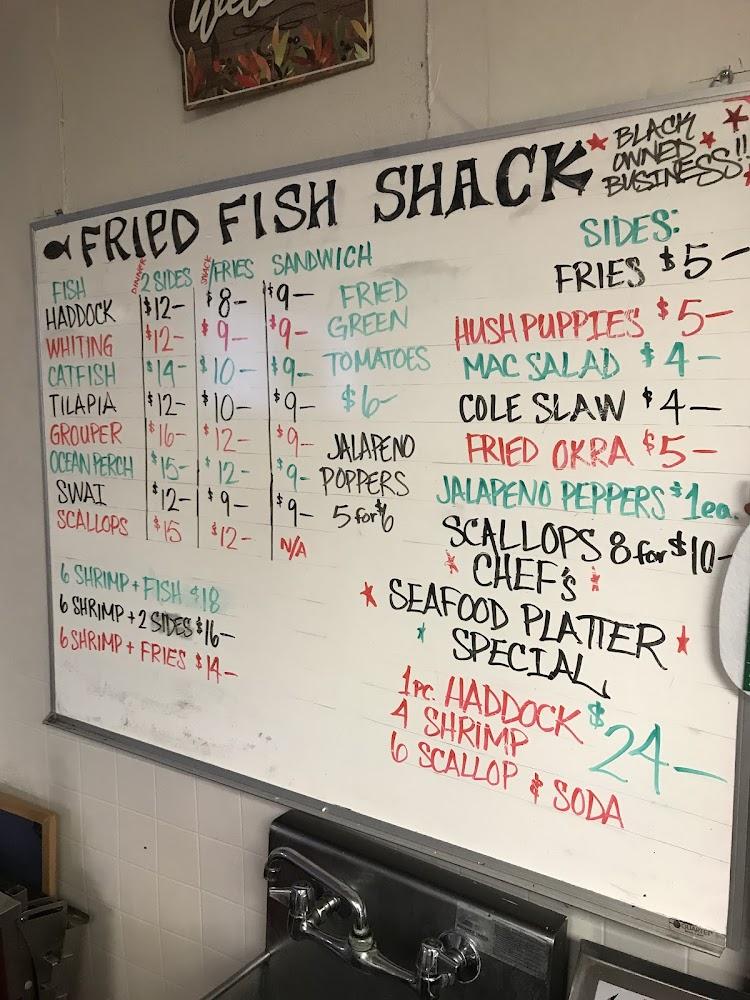 Welcome
FRIED FISH SHACK
BLACK
OWNED
BUSINESS!!
FISH DINNER 2 SIDES SNACK /FRIES SANDWICH
HADDOCK $12— $8— $9—
WHITING $12— $9— $9—
CATFISH $14— $10— $9—
TILAPIA $12— $10— $9—
GROUPER $16— $12— $9—
OCEAN PERCH $15— $12— $9—
SWAI $12— $9— $9—
SCALLOPS $15 $12— N/A
6 SHRIMP + FISH $18
6 SHRIMP + 2 SIDES $16—
6 SHRIMP + FRIES $14—
FRIED
GREEN
TOMATOES
$6—
JALAPENO
POPPERS
5 for $6
SIDES:
FRIES $5—
HUSH PUPPIES $5—
MAC SALAD $4—
COLE SLAW $4—
FRIED OKRA $5—
JALAPENO PEPPERS $1ea.
SCALLOPS 8 for $10—
CHEF'S
SEAFOOD PLATTER
SPECIAL
1PC. HADDOCK
4 SHRIMP
6 SCALLOP & SODA
$24—
QUARTET